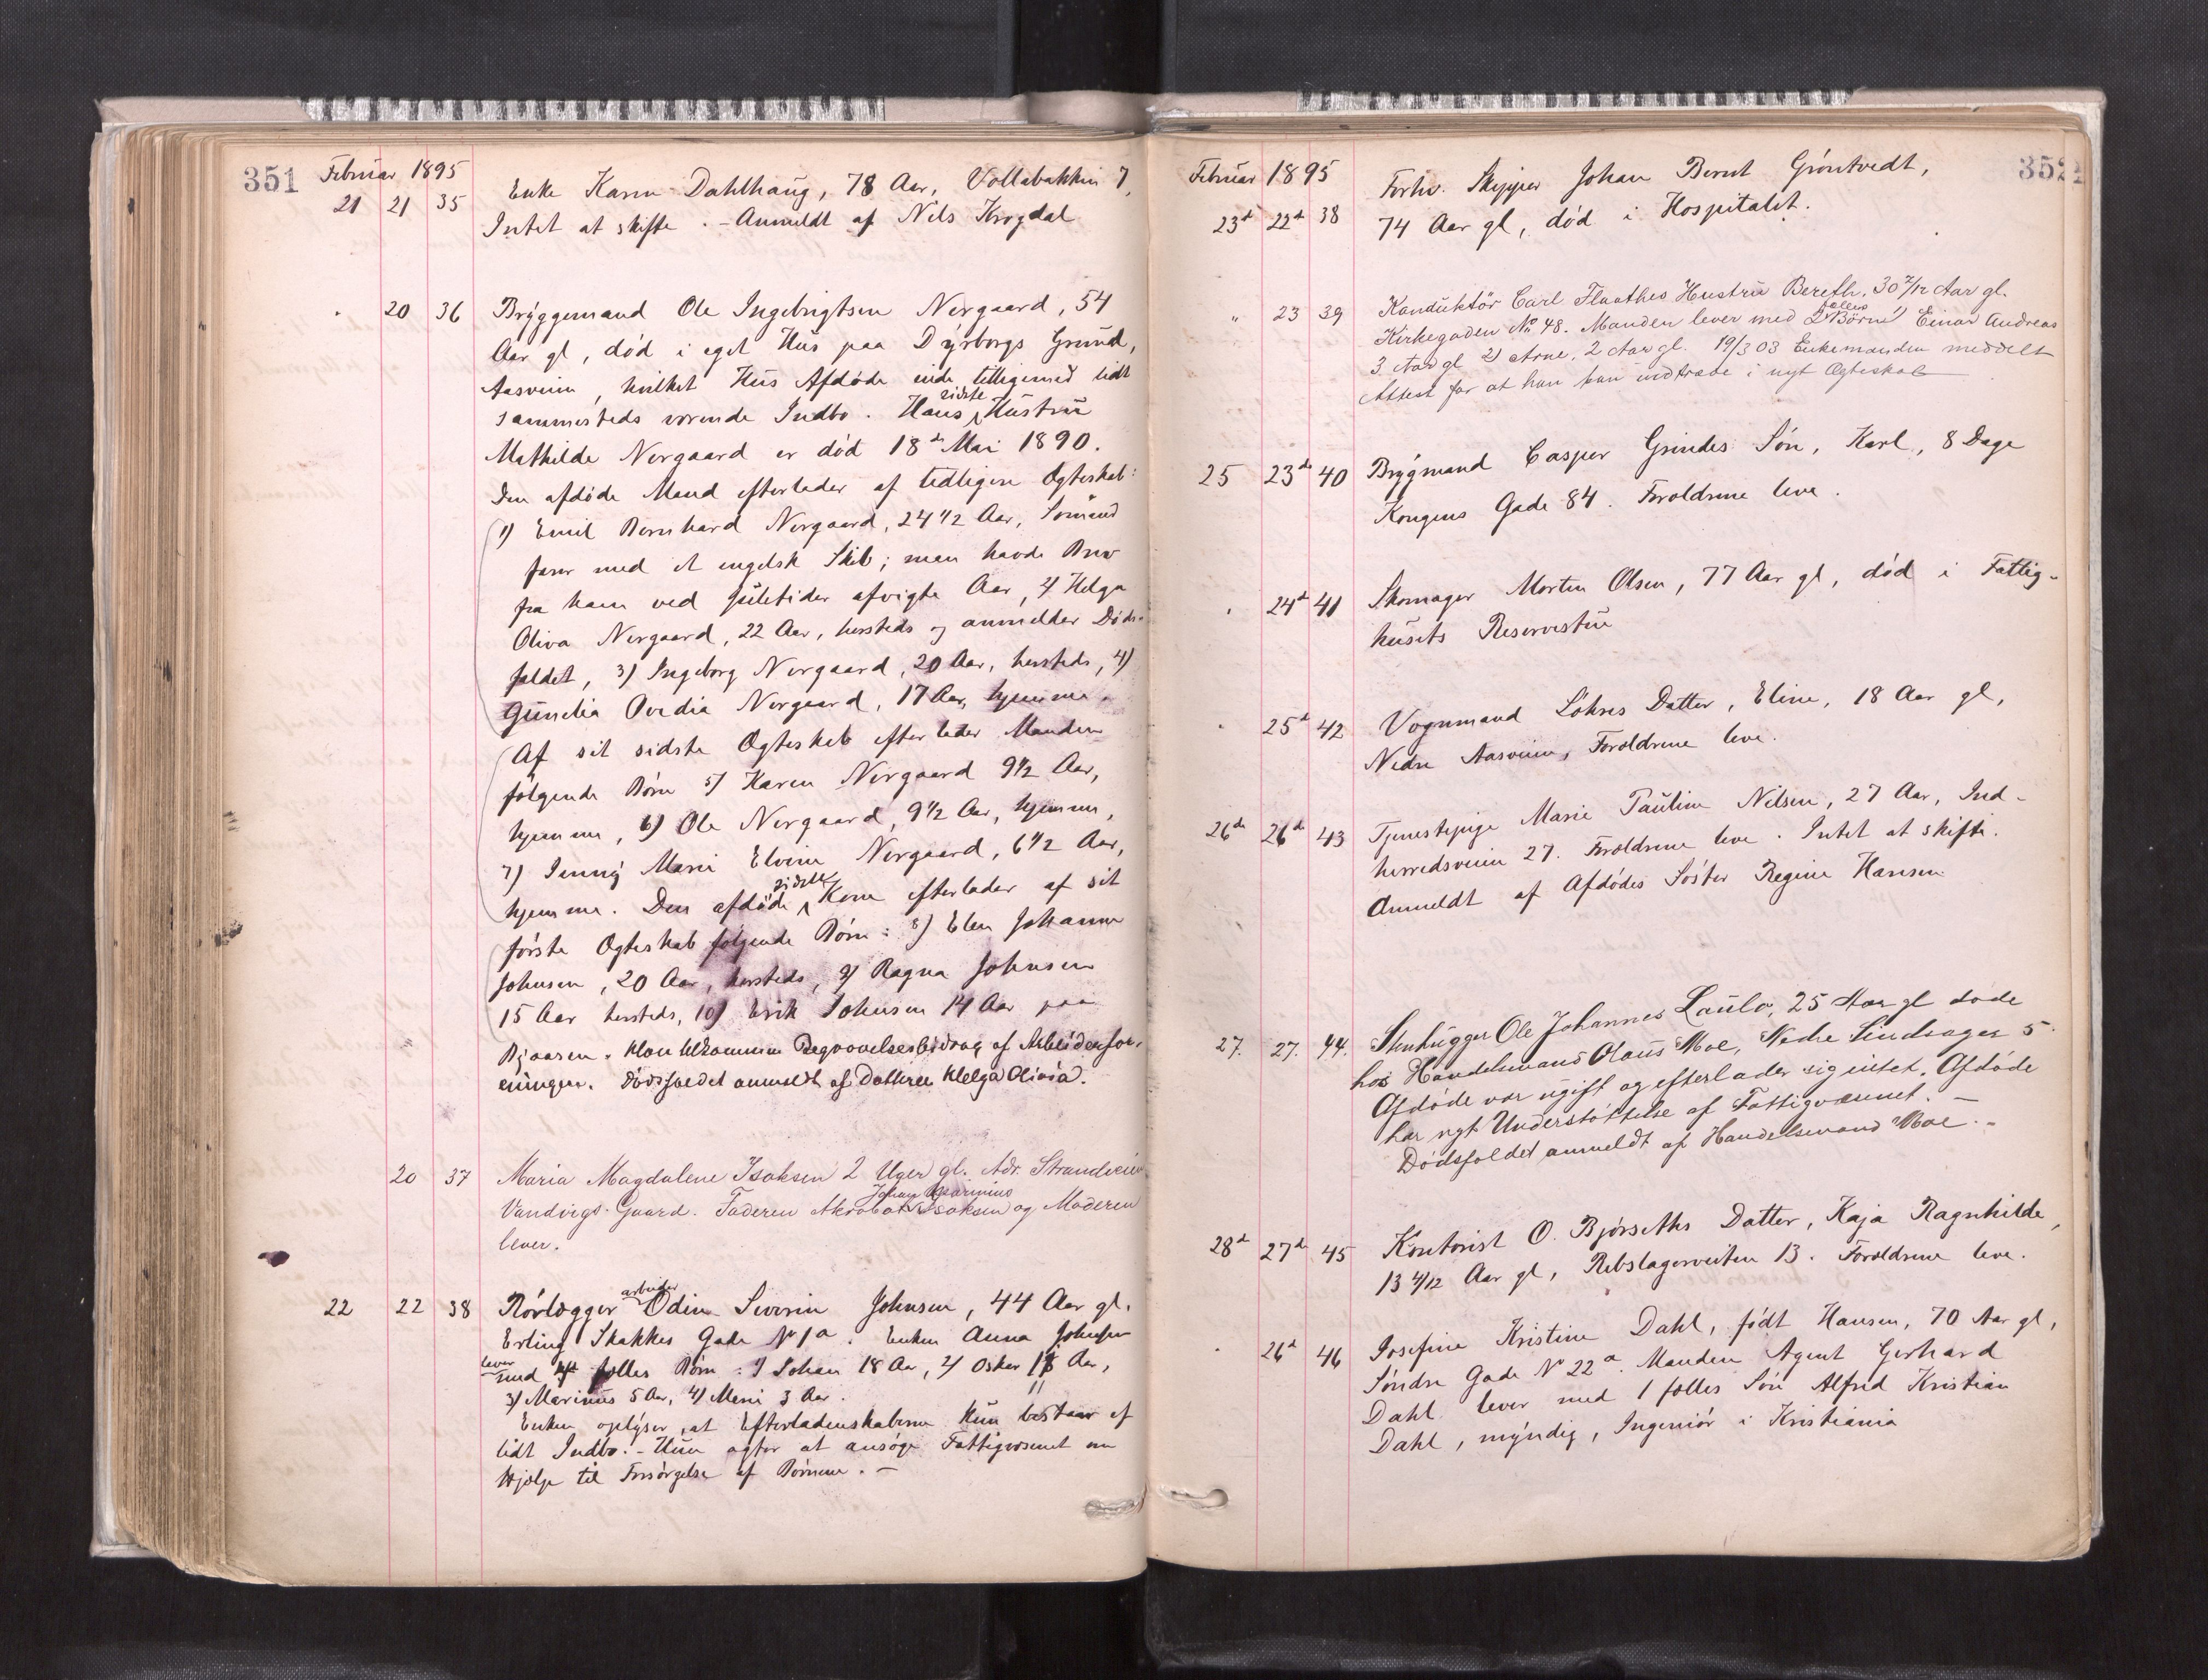 351
Februar 1895
21 21 35 Enke Karen Dahlhaug, 78 Aar, Vollabakken 7,
Intet at skifte. - Anmeldt af Nils Krogdal
" 20 36 Bryggemand Ole Ingebrigtsen Nergaard, 54
Aar gl, død i eget Hus paa Dyrborgs Grund,
Aasveien, hvilket Hus Afdøde eiede tilligemed lidt
sammesteds værende Indbo. Hans sidste Hustru
Mathilde Nergaard er død 18de Mai 1890.
Den afdøde Mand efterlader af tidligere Ægteskab:
1) Emil Bernhard Nergaard, 24 1/2 Aar, Sømand
farer med et engelsk Skib; man havde Brev
fra ham ved Juletider afvigte Aar, 2) Helga
Oliva Nergaard, 22 Aar, hersteds og anmelder Døds-
faldet, 3) Ingeborg Nergaard, 20 Aar, hersteds, 4)
Gunelia Ovedia Nergaard, 17 Aar, hjemme.
Af sit sidste Ægteskab efterlader Manden
følgende Børn 5) Karen Nergaard 9 1/2 Aar,
hjemme, 6) Ole Nergaard, 9 1/2 Aar, hjemme,
7) Jenny Marie Elvine Nergaard, 6 1/2 Aar,
hjemme. Den afdøde sidste Kone efterlader af sit
første Ægteskab følgende Børn: 8) Elen Johanne
Johnsen, 20 Aar, hersteds, 9) Ragna Johnsen
15 Aar hersteds, 10) Erik Johnsen 14 Aar paa
Bjaaren. Man tilkommer Begravelsesbidrag af Arbeiderfor-
eningen. Dødsfaldet anmeldt af Datteren Helga Olivia.
20 37 Maria Magdalene Isaksen 2 Uger gl. Adr. Strandveien
Vandvigs Gaard. Faderen Akrobat Johan Marinius Isaksen og Moderen
lever.
22 22 38 Rørlægger arbeider Odin Severin Johnsen, 44 Aar gl.
Erling Skakkes Gade No 1a. Enken Anna Johnsen
lever med 4 fælles Børn: 1) Johan 18 Aar, 2) Oskar 11 Aar,
3) Marinus 5 Aar, 4) Marie 3 Aar.
Enken oplyser, at Efterladenskaberne kun bestaar af
lidt Indbo. - Hun agter at ansøge Fattigvæsenet om
Hjælp til Forsørgelse af Børnene. -
352
Februar 1895
23de 22de 38 Forhv. Skipper Johan Bernt Grøntvedt,
74 Aar gl, død i Hospitalet.
" 23 39 Konduktør Carl Flaathes Hustru Bereth, 30 7/12 Aar gl.
Kirkegaden No 48. Manden lever med 2 fælles Børn 1) Einar Andreas
3 Aar gl 2) Arne, 2 Aar gl. 19/3 03 Enkemanden meddelt
Attest for at han kan indtræde i nyt Ægteskab
25 23de 40 Brygmand Casper Grindes Søn, Karl, 8 Dage
Kongens Gade 84. Forældrene leve.
" 24de 41 Skomager Morten Olsen, 77 Aar gl, død i Fattig-
husets Reservestue
" 25de 42 Vognmand Løkres Datter, Eline, 18 Aar gl,
Nedre Aasveien, Forældrene leve.
26de 26de 43 Tjenestepige Marie Pauline Nilsen, 27 Aar, Ind-
herredsveien 27. Forældrene leve. Intet at skifte.
Anmeldt af Afdødes Søster Regine Hansen
27. 27. 44. Stenhugger Ole Johannes Laulo, 25 Aar gl døde
hos Handelsmand Olaus Moe, Nedre Sindsager 5.
Afdøde var ugift og efterlader sig intet. Afdøde
har nydt Understøttelse af Fattigvæsenet. -
Dødsfaldet anmeldt af Handelsmand Moe. -
28de 27de 45 Kontorist O. Bjørseths Datter, Kaja Ragnhilde,
13 4/12 Aar gl, Rebslagerveiten 13. Forældrene leve.
" 26de 46 Josefine Kristine Dahl, født Hansen, 70 Aar gl,
Søndre Gade No 22a. Manden Agent Gerhard
Dahl lever med 1 fælles Søn Alfred Kristian
Dahl, myndig, Ingeniør i Kristiania